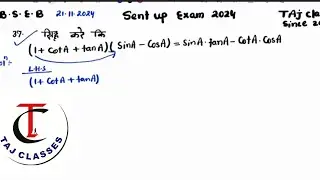 B.S.E.B 21.11.2024 Sent up Exam 2024 TAj cla
Since 20
37. सिद्ध करे कि
(1 + CotA + tanA)(SinA - CosA) = SinA·tanA - CotA·CosA
L.H.S
(1 + CotA + tanA)
TC
TAJ CLASSES